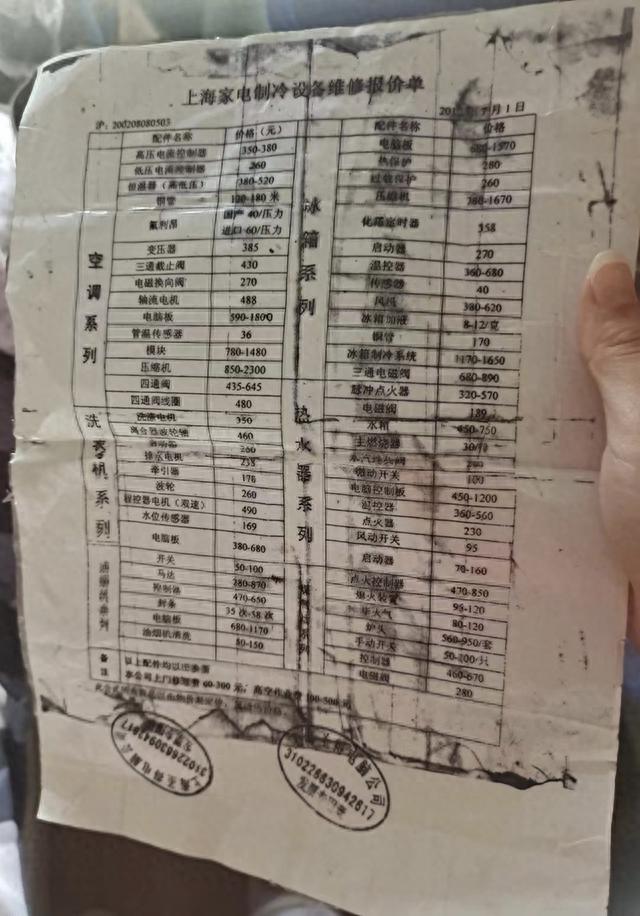 上海家电制冷设备维修报价单
沪：200208080503
月1日
配件名称 价格（元）
空调系列
高压电流控制器 350-380
低压电流控制器 260
恒温器（高低压） 380-520
铜管 120-180 米
氟利昂 国产 40/压力
进口 60/压力
变压器 385
三通截止阀 430
电磁换向阀 270
轴流电机 488
电脑板 590-1800
管温传感器 36
模块 780-1480
压缩机 850-2300
四通阀 435-645
四通阀线圈 480
洗衣机系列
洗涤电机 350
离合器波轮轴 460
启动器 260
排水电机 238
牵引器 178
波轮 260
程控器电机（双速） 490
水位传感器 169
电脑板 380-680
开关 50-100
马达 280-870
控制器 470-650
封条 35 次-58 次
电脑板 680-1170
油烟机清洗 80-150
配件名称 价格
冰箱系列
电脑板 680-1570
热保护 280
过载保护 260
压缩机 380-1670
化霜定时器 358
启动器 270
温控器 360-680
传感器 40
风机 380-620
冰箱加液 8-12/克
铜管 170
冰箱制冷系统 1170-1650
三通电磁阀 680-890
热水器系列
脉冲点火器 320-570
电磁阀 189
水箱 450-750
主燃烧器 30/排
燃动开关 100
电脑控制板 450-1200
温控器 360-560
点火器 230
风动开关 95
启动器 70-160
点火控制器 470-850
熄火装置 95-120
80-120
炉头 560-950/套
手动开关 50-100/只
控制器 460-670
电磁阀 280
备注
以上配件均以
本公司上门修理费 60-300 元；高空作业费 100-500 元
310226630942617
310226630942617
发票专用章